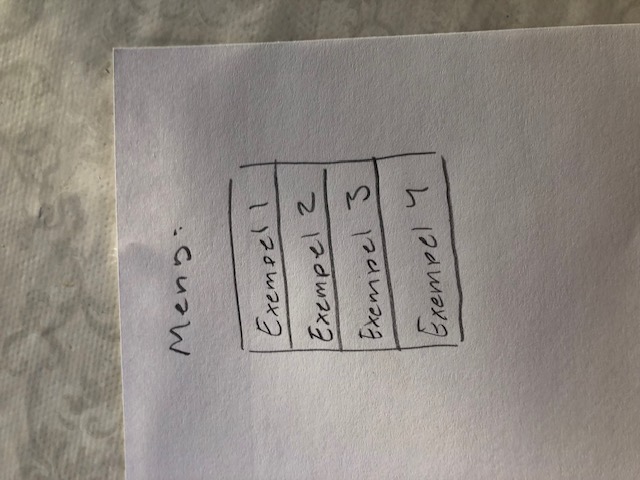 Meny:
Exempel 1
Exempel 2
Exempel 3
Exempel 4